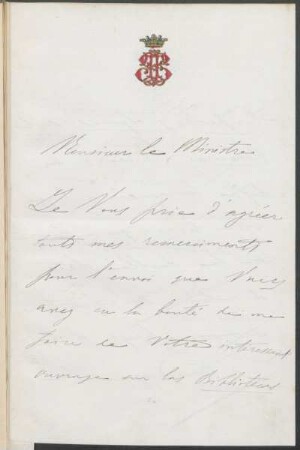 Monsieur le Ministre
Je Vous prie d'agréer
touts mes remerciments
pour l'envoi que Vous
avez eu la bonté de me
faire de Votre intéressant
ouvrage sur les